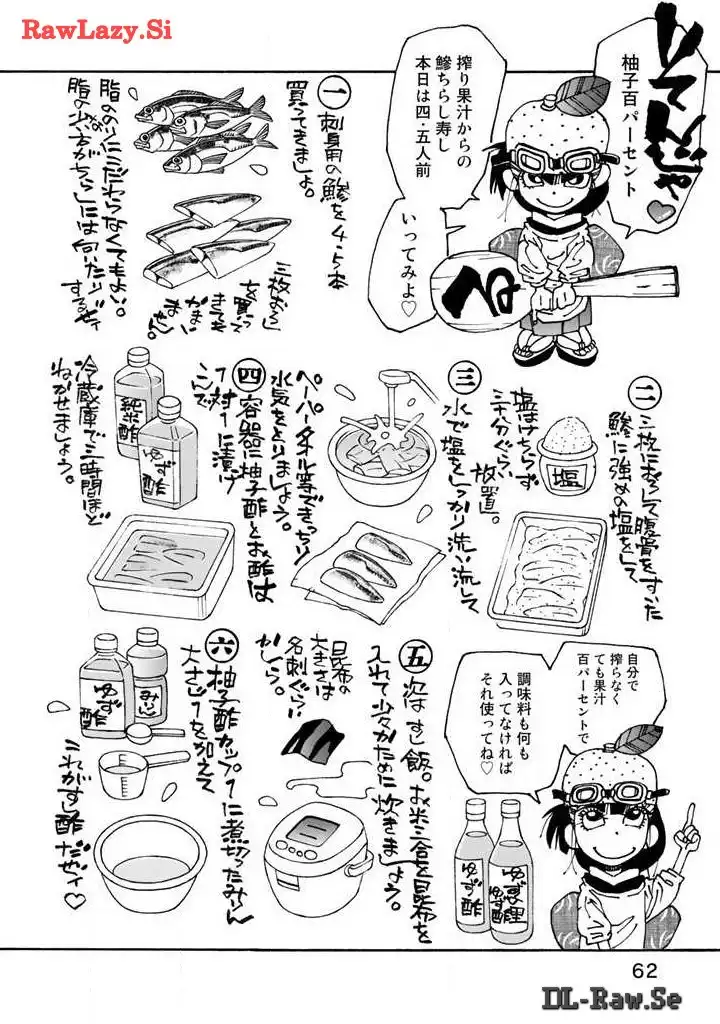 RawLazy.Si
いてんじゃ♥
柚子百パーセント
搾り果汁からの
鯵ちらし寿し
本日は四・五人前
いってみよ♡
る
一
刺身用の鯵を4・5本
買ってきましょ。
三枚おろし
を買って
きても
かまい
ません。
脂ののりにこだわらなくてもよい。
脂の少なめな方がちらしには向いたりが
するぜィ
二
三枚におろして腹骨をすいた
鯵に強めの塩をして
塩はけちらず
三十分ぐらい
放置。
塩
三
水で塩をしっかり洗い流して
ペーパータオル等できっちり
水気をとりましょう。
四
容器に柚子酢とお酢は
1対1に漬け
こんで
冷蔵庫で三時間ほど
ねかせましょう。
純米酢
ゆず酢
自分で
搾らなく
ても果汁
百パーセントで
調味料も何も
入ってなければ
それ使ってね♡
ゆず酢
ゆずの里
ゆず酢
五
次はすし飯。お米三合を昆布を
入れて少々かために炊きましょう。
昆布の
大きさは
名刺ぐらい
かしら。
六
柚子酢カップ1に煮切ったみりん
大さじ1を加えて
これがすし酢だぜィ♡
ゆず酢
みりん
62
DL-Raw.Se